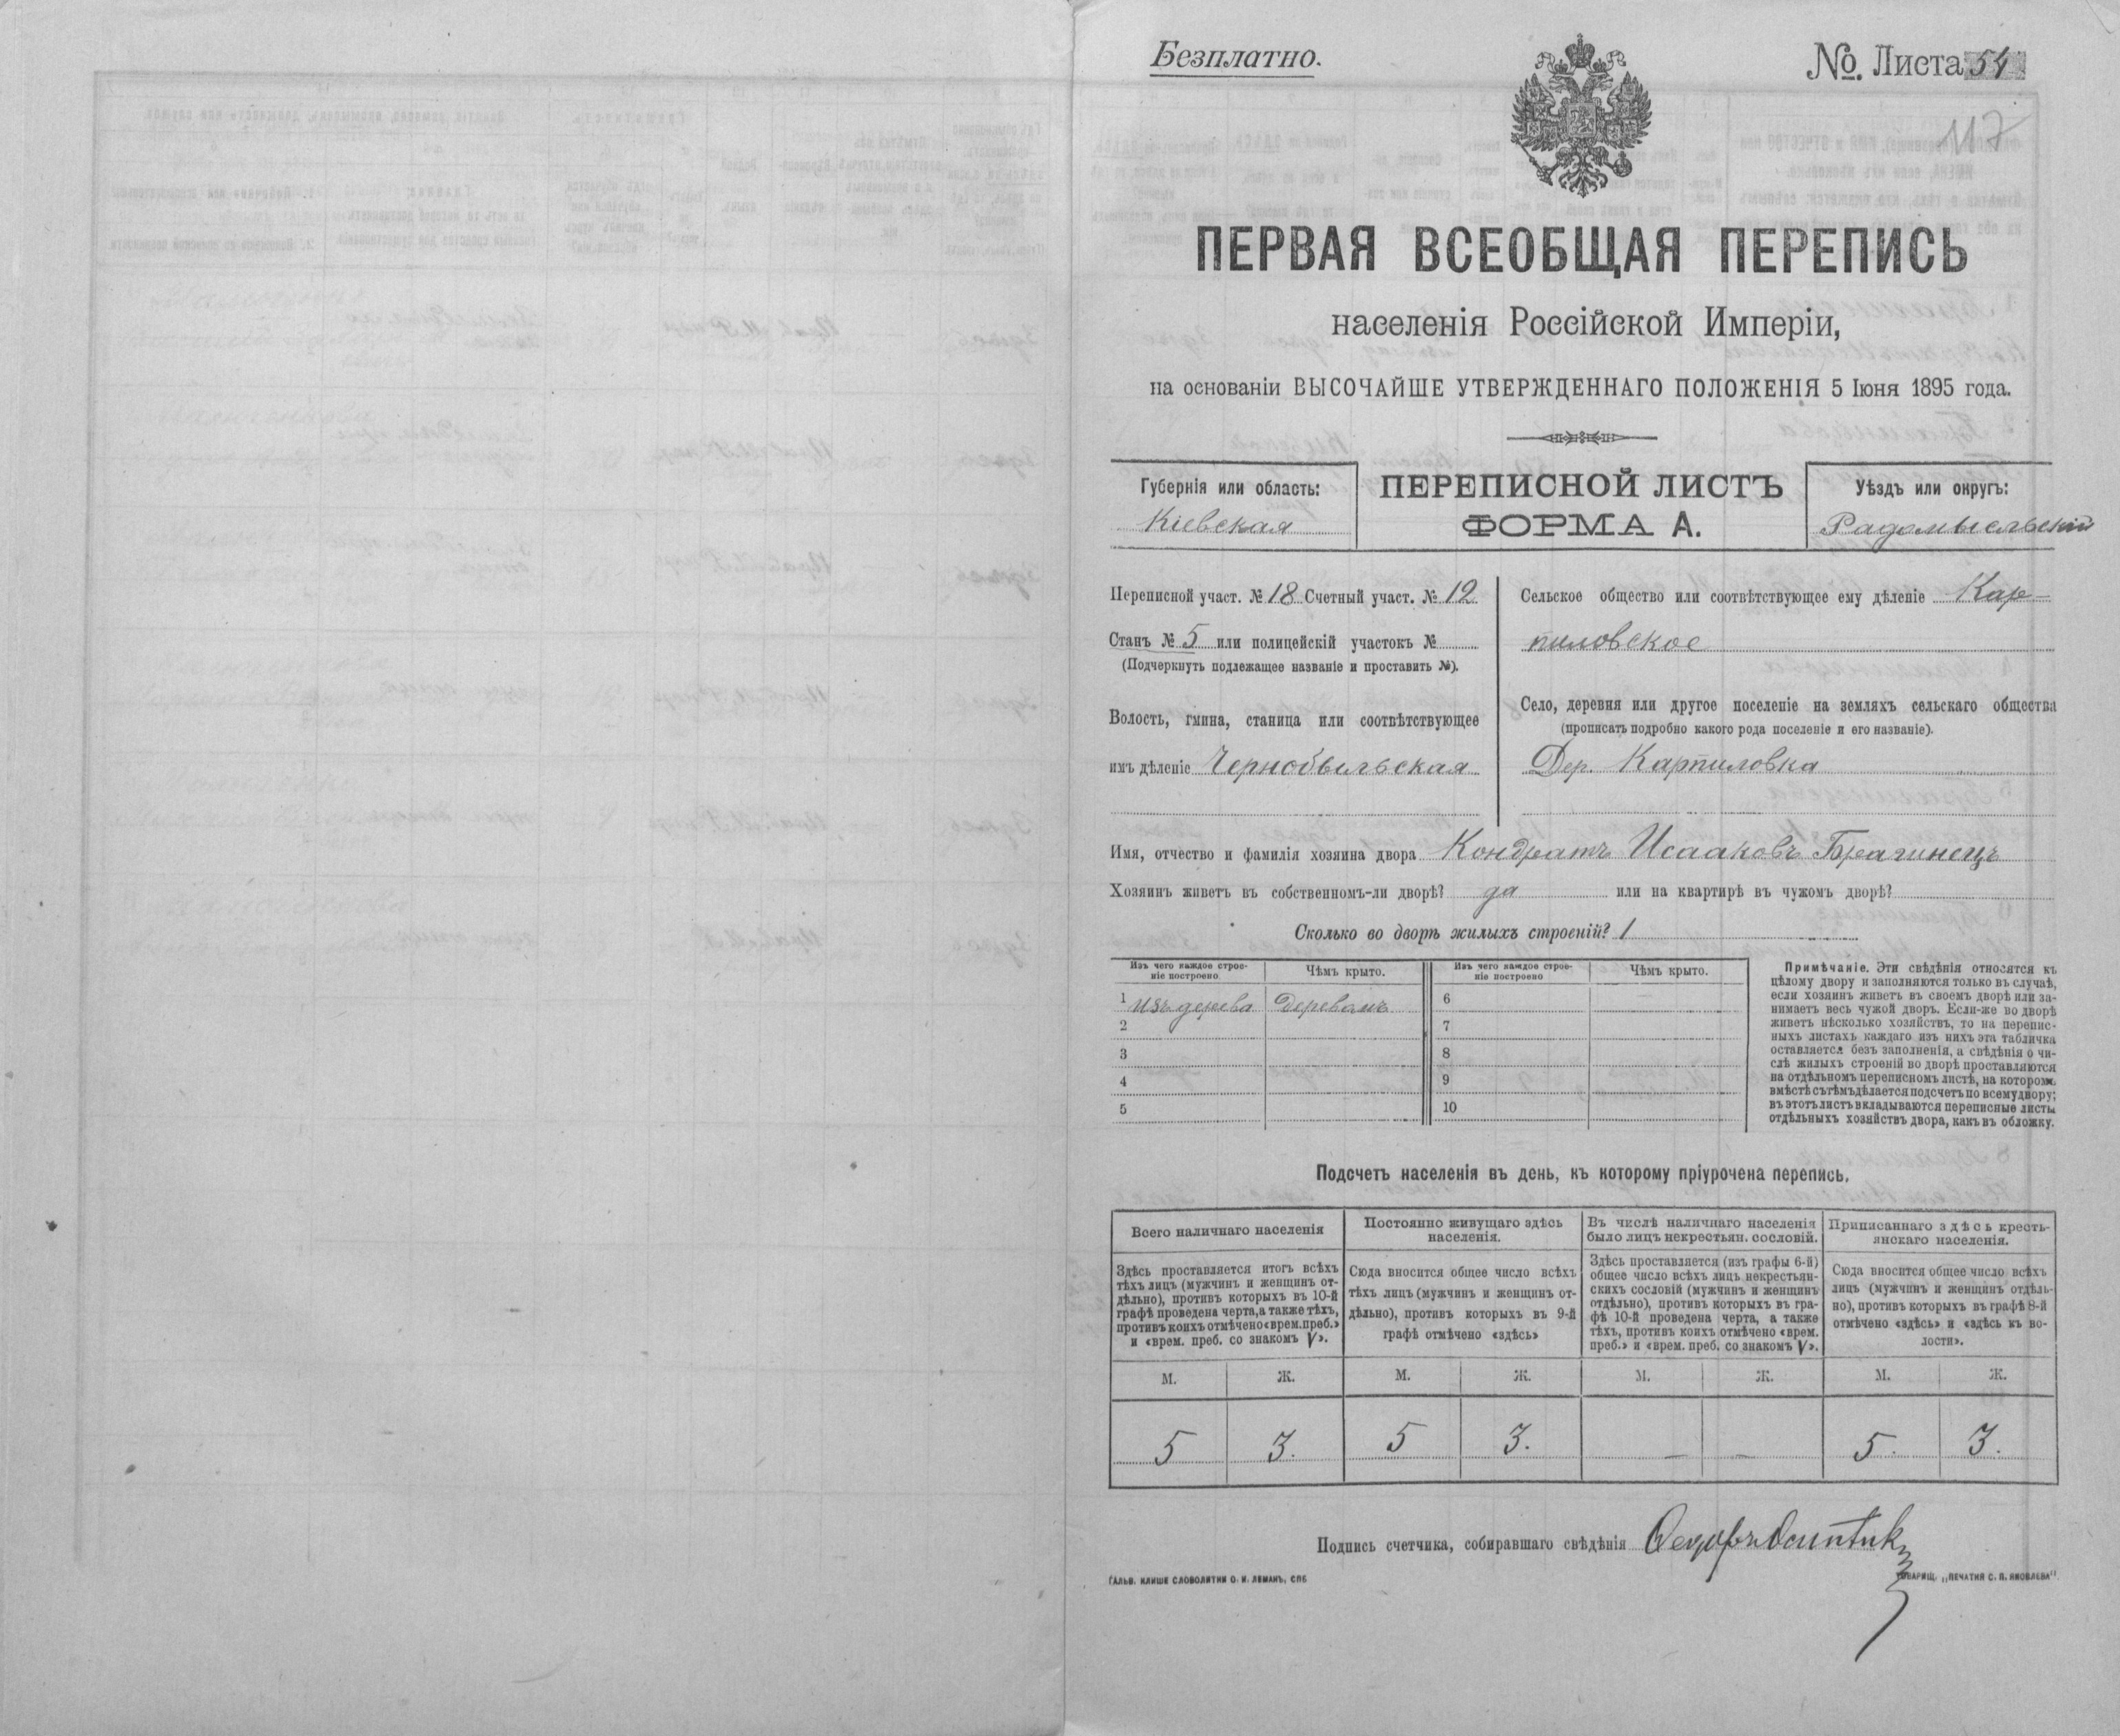 Безплатно.
№. Листа 54
117
ПЕРВАЯ ВСЕОБЩАЯ ПЕРЕПИСЬ
населенія Россійской Имперіи,
на основаніи ВЫСОЧАЙШЕ УТВЕРЖДЕННАГО ПОЛОЖЕНІЯ 5 Іюня 1895 года.
Губернія или область:
Кіевская
ПЕРЕПИСНОЙ ЛИСТЪ
ФОРМА А.
Уѣздъ или округъ:
Радомысльскій
Переписной участ. № 18 Счетный участ. № 12
Станъ № 5 или полицейскій участокъ №
(Подчеркнуть подлежащее названіе и проставить №).
Волость, гмина, станица или соотвѣтствующее
имъ дѣленіе Чернобыльская
Сельское общество или соотвѣтствующее ему дѣленіе Кар-
пиловское
Село, деревня или другое поселеніе на земляхъ сельскаго общества
(прописать подробно какого рода поселеніе и его названіе).
Дер. Карпиловка
Имя, отчество и фамилія хозяина двора Кондратъ Исааковъ Брагинецъ
Хозяинъ живетъ въ собственномъ-ли дворѣ? да или на квартирѣ въ чужомъ дворѣ?
Сколько во дворѣ жилыхъ строеній? 1
Изъ чего каждое строе-
ніе построено
Чѣмъ крыто.
Изъ чего каждое строе-
ніе построено
Чѣмъ крыто.
1 Изъ дерева Деревомъ 6
2 7
3 8
4 9
5 10
Примѣчаніе. Эти свѣдѣнія относятся къ
цѣлому двору и заполняются только въ случаѣ,
если хозяинъ живетъ въ своемъ дворѣ или за-
нимаетъ весь чужой дворъ. Если-же во дворѣ
живетъ нѣсколько хозяйствъ, то на перепис-
ныхъ листахъ каждаго изъ нихъ эта табличка
оставляется безъ заполненія, а свѣдѣнія о чи-
слѣ жилыхъ строеній во дворѣ проставляются
на отдѣльномъ переписномъ листѣ, на которомъ
вмѣстѣ съ тѣмъ дѣлается подсчетъ по всему двору;
въ этотъ листъ вкладываются переписные листы
отдѣльныхъ хозяйствъ двора, какъ въ обложку.
Подсчетъ населенія въ день, къ которому пріурочена перепись.
Всего наличнаго населенія
Постоянно живущаго здѣсь
населенія.
Въ числѣ наличнаго населенія
было лицъ некрестьян. сословій.
Приписаннаго здѣсь кресть-
янскаго населенія.
Здѣсь проставляется итогъ всѣхъ
тѣхъ лицъ (мужчинъ и женщинъ от-
дѣльно), противъ которыхъ въ 10-й
графѣ проведена черта, а также тѣхъ,
противъ коихъ отмѣчено «врем. преб.»
и «врем. преб. со знакомъ V».
Сюда вносится общее число всѣхъ
тѣхъ лицъ (мужчинъ и женщинъ от-
дѣльно), противъ которыхъ въ 9-й
графѣ отмѣчено «здѣсь»
Здѣсь проставляется (изъ графы 6-й)
общее число всѣхъ лицъ некрестьян-
скихъ сословій (мужчинъ и женщинъ
отдѣльно), противъ которыхъ въ гра-
фѣ 10-й проведена черта, а также
тѣхъ, противъ коихъ отмѣчено «врем.
преб.» и «врем. преб. со знакомъ V».
Сюда вносится общее число всѣхъ
лицъ (мужчинъ и женщинъ отдѣль-
но), противъ которыхъ въ графѣ 8-й
отмѣчено «здѣсь» и «здѣсь къ во-
лости».
М. Ж. М. Ж. М. Ж. М. Ж.
5 3. 5 3. — — 5. 3.
Подпись счетчика, собиравшаго свѣдѣнія
ГАЛЬВ. КЛИШЕ СЛОВОЛИТНИ О. И. ЛЕМАНЪ, СПБ
ТОВАРИЩ. „ПЕЧАТНЯ С. П. ЯКОВЛЕВА"